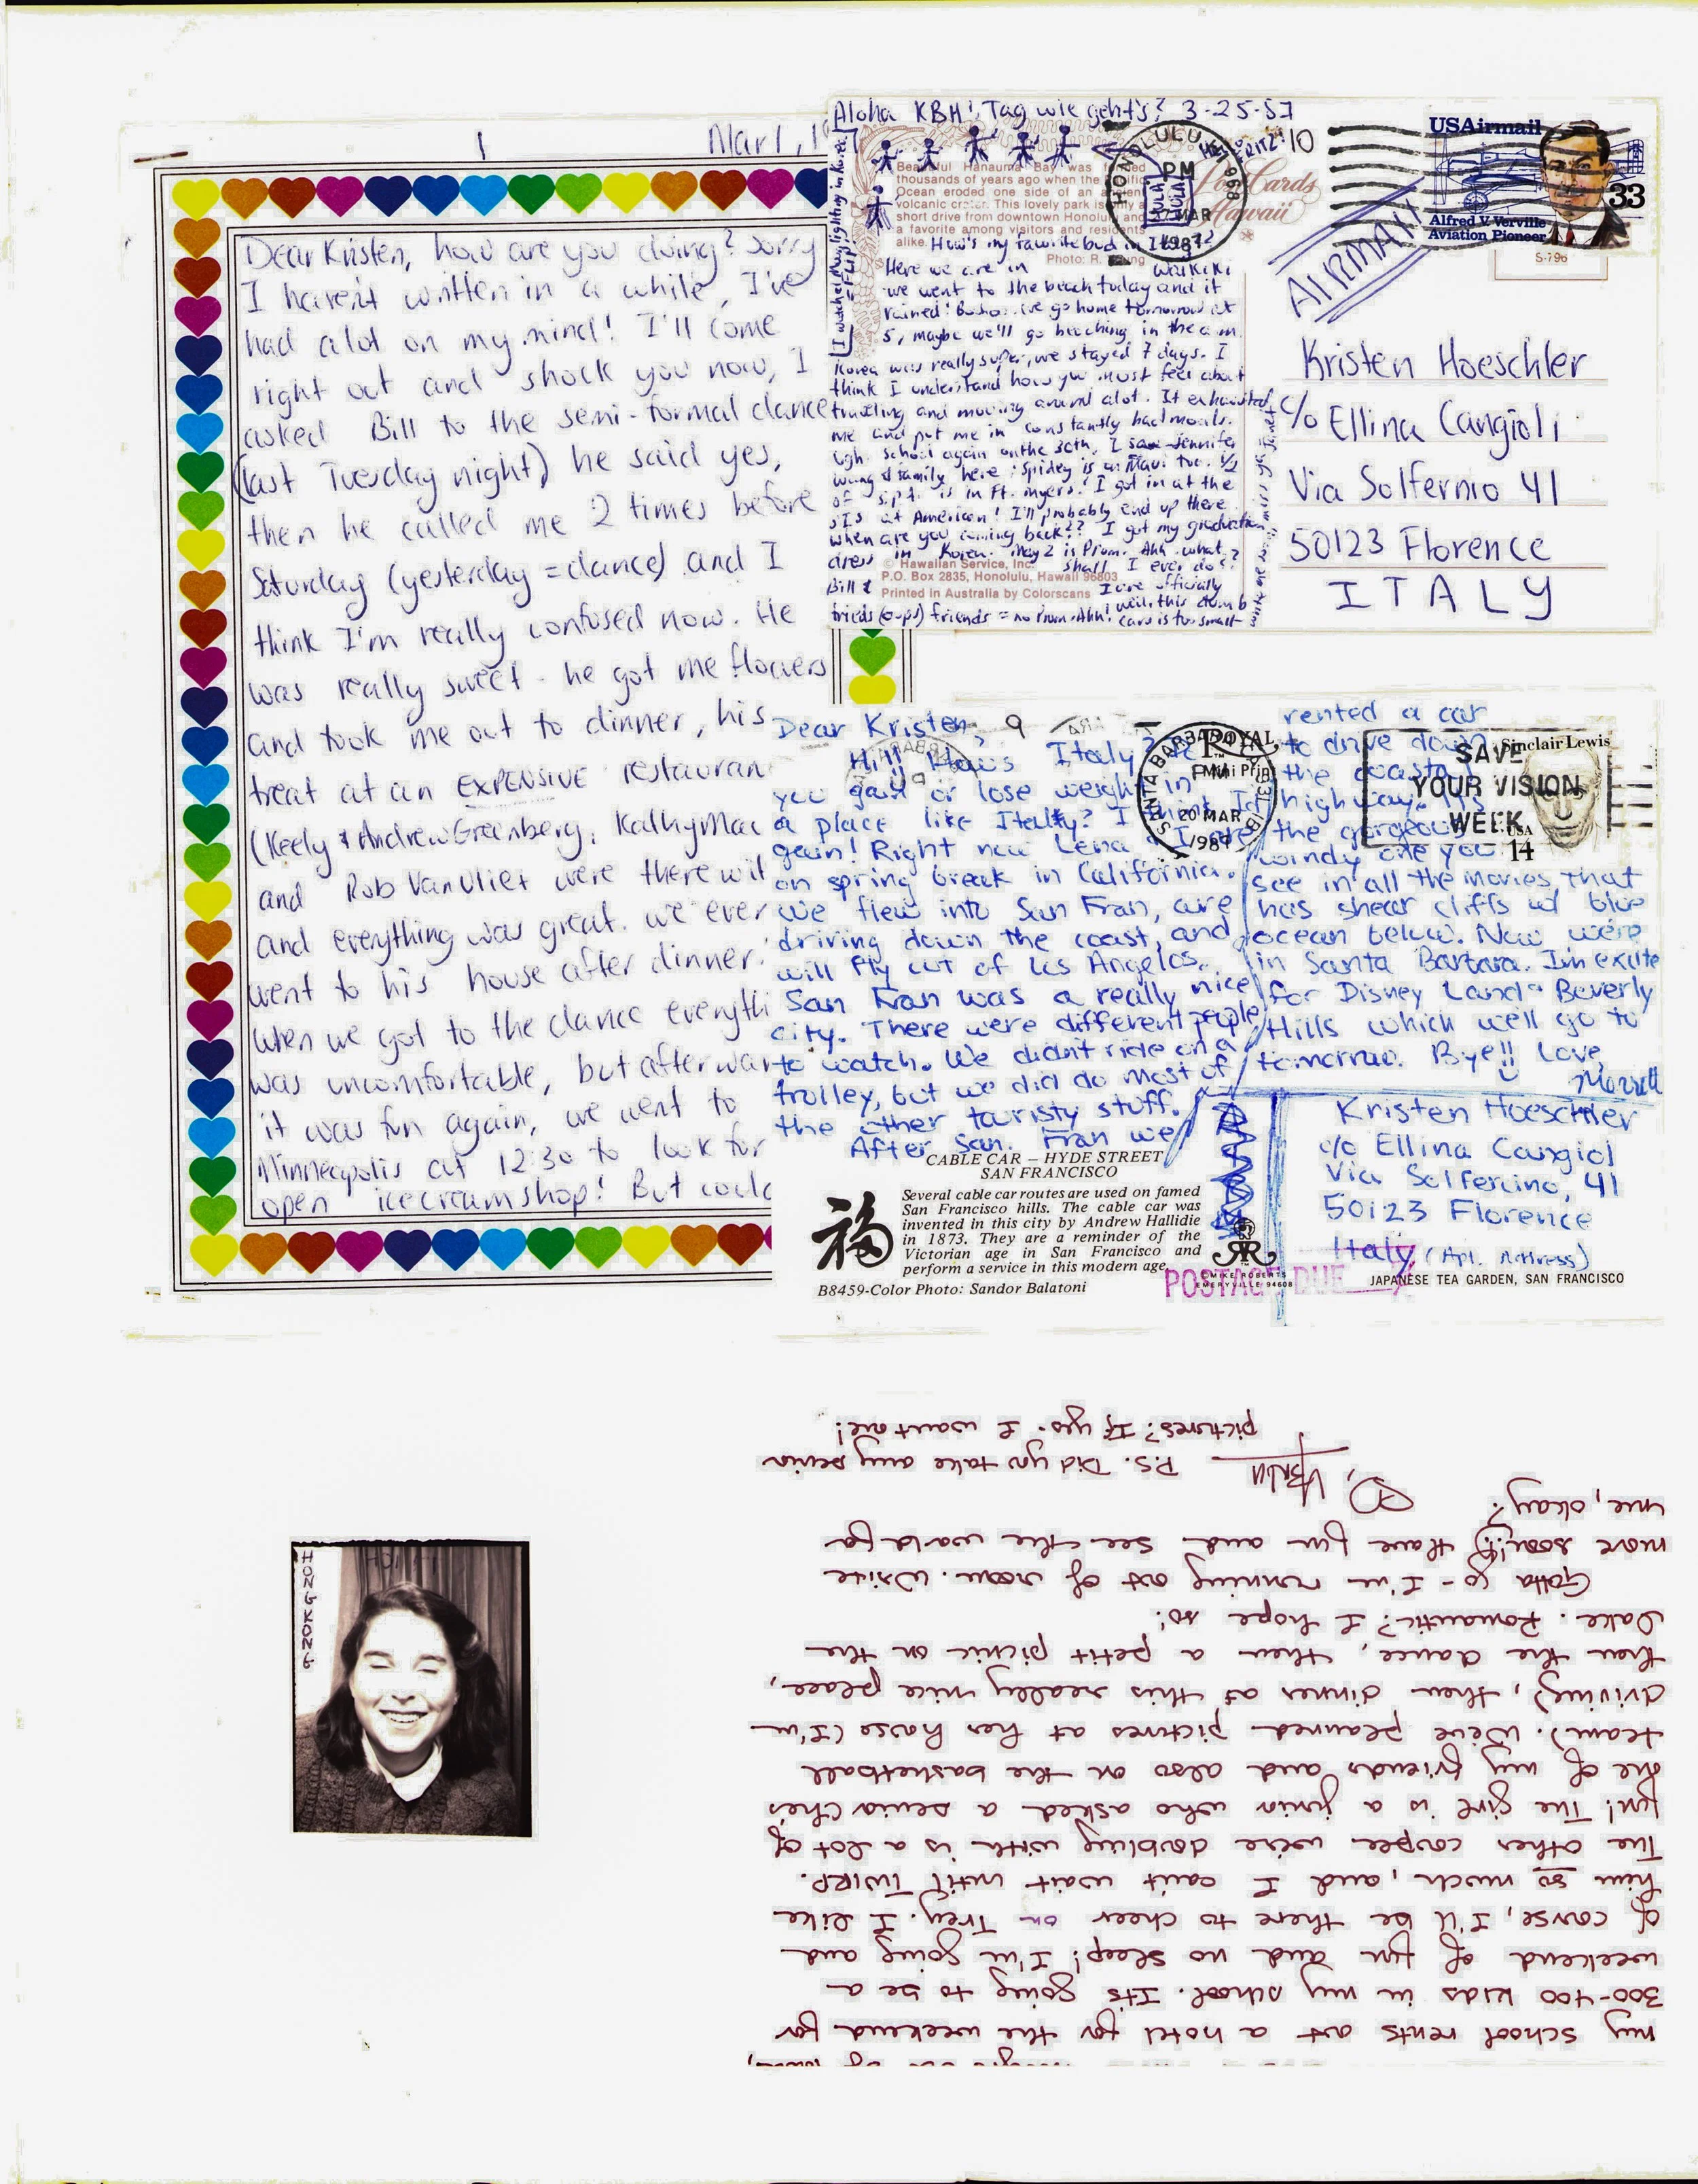 1
Mar 1, 1
Dear Kristen, how are you doing? Sorry
I haven't written in a while, I've
had alot on my mind! I'll come
right out and shock you now, I
asked Bill to the semi-formal dance
(last Tuesday night) he said yes,
then he called me 2 times before
Saturday (yesterday = dance) and I
think I'm really confused now. He
was really sweet - he got me flowers
and took me out to dinner, his
treat at an EXPENSIVE restauran
(Keely & Andrew Greenberg, Kathy Mac
and Rob VanVliet were there wit
and everything was great. we ever
went to his house after dinner.
When we got to the dance everythi
was uncomfortable, but afterwar
it was fun again, we went to
Minneapolis at 12:30 to look for
open icecream shop! But could
Aloha KBH! Tag wie geht's? 3-25-87
HONOLULU, HI 968
PM
MAR
1987
Post Cards Hawaii
USAirmail
33
Alfred V. Verville
Aviation Pioneer
AIRMAIL
S-796
Beautiful Hanauma Bay was formed
thousands of years ago when the Pacific
Ocean eroded one side of an ancient
volcanic crater. This lovely park is only a
short drive from downtown Honolulu and
a favorite among visitors and residents
alike.
Photo: R.
How's my favorite bud in
Here we are in Waikiki
we went to the beach today and it
rained! we go home tomorrow at
5, maybe we'll go beaching in the a.m.
Korea was really super, we stayed 7 days. I
think I understand how you must feel about
traveling and moving around alot. It exhausted
me and put me in constantly bad moods.
Ugh. School again on the 30th. I saw Jennifer
Wong & family here! Spidey is in Maui too. 1/2
of S.P.A. is in Ft. Myers! I got in at the
SIS at American! I'll probably end up there.
When are you coming back?? I got my graduation
dress in Korea. May 2 is Prom. Ahh what
shall I ever do?
© Hawaiian Service, Inc.
P.O. Box 2835, Honolulu, Hawaii 96803
Printed in Australia by Colorscans
Bill & I are officially
frieds (oops!) friends = no Prom. Ahh! well, this dumb
card is too small
Kristen Hoeschler
c/o Ellina Cangioli
Via Solfernio 41
50123 Florence
ITALY
Dear Kristen,
Hi!! How's Italy? Do
you gain or lose weight in
a place like Italty? I think I'd
gain! Right now Lena & I are
on spring break in California.
We flew into San Fran, are
driving down the coast, and
will fly out of Los Angelos.
San Fran was a really nice
city. There were different people
to watch. We didn't ride on a
trolley, but we did do most of
the other touristy stuff.
After San. Fran we
rented a car
to drive down
the coastal
highway. It's
the gorgeous
windy one you
see in all the movies, that
has shear cliffs w/ blue
ocean below. Now we're
in Santa Barbara. I'm excite
for Disney Land & Beverly
Hills which we'll go to
tomorrow. Bye!! Love,
SANTA BARBARA
PM
20 MAR
1987
SAVE
YOUR VISION
WEEK
Sinclair Lewis
USA
14
Kristen Hoeschler
c/o Ellina Cangiol
Via Solfercino, 41
50123 Florence
Italy (Apt. Address)
CABLE CAR – HYDE STREET
SAN FRANCISCO
Several cable car routes are used on famed
San Francisco hills. The cable car was
invented in this city by Andrew Hallidie
in 1873. They are a reminder of the
Victorian age in San Francisco and
perform a service in this modern age.
福
MIKE ROBERTS
EMERYVILLE 94608
POSTAGE DUE
B8459-Color Photo: Sandor Balatoni
JAPANESE TEA GARDEN, SAN FRANCISCO
HONG KONG
my school rents out a hotel for the weekend for
300-400 kids in my school. Its going to be a
weekend of fun and no sleep! I'm going and
of course, I'll be there to cheer on Trey. I like
him so much, and I can't wait until TWIRP.
The other couple we're doubling with is a lot of
fun! The girl is a junior who asked a senior (he's
one of my friends and also on the basketball
team). We've planned pictures at her house (I'm
driving), then dinner at this really nice place,
then the dance, then a petit picnic on the
Dake. Romantic? I hope so!
Gotta go - I'm running out of room. Write
more soon!! Have fun and see the world for
me, okay?
P.S. Did you take any senior
pictures? If yes. I want one!